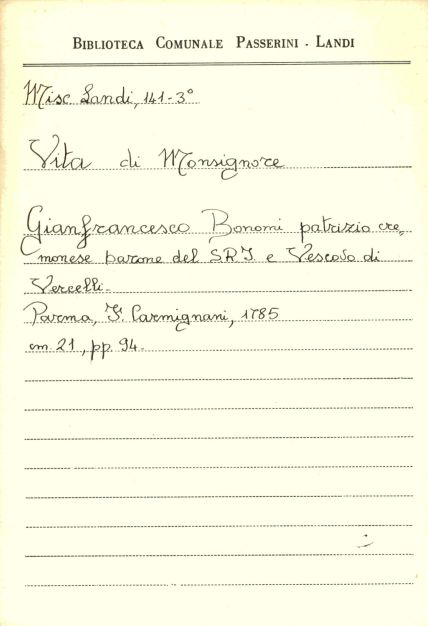 BIBLIOTECA COMUNALE PASSERINI - LANDI
Misc. Landi, 141-3°
Vita di Monsignore
Gianfrancesco Bonomi patrizio cre,
monese barone del S.R.I. e Vescovo di
Vercelli.
Parma, F. Carmignani, 1785
cm. 21, pp. 94.